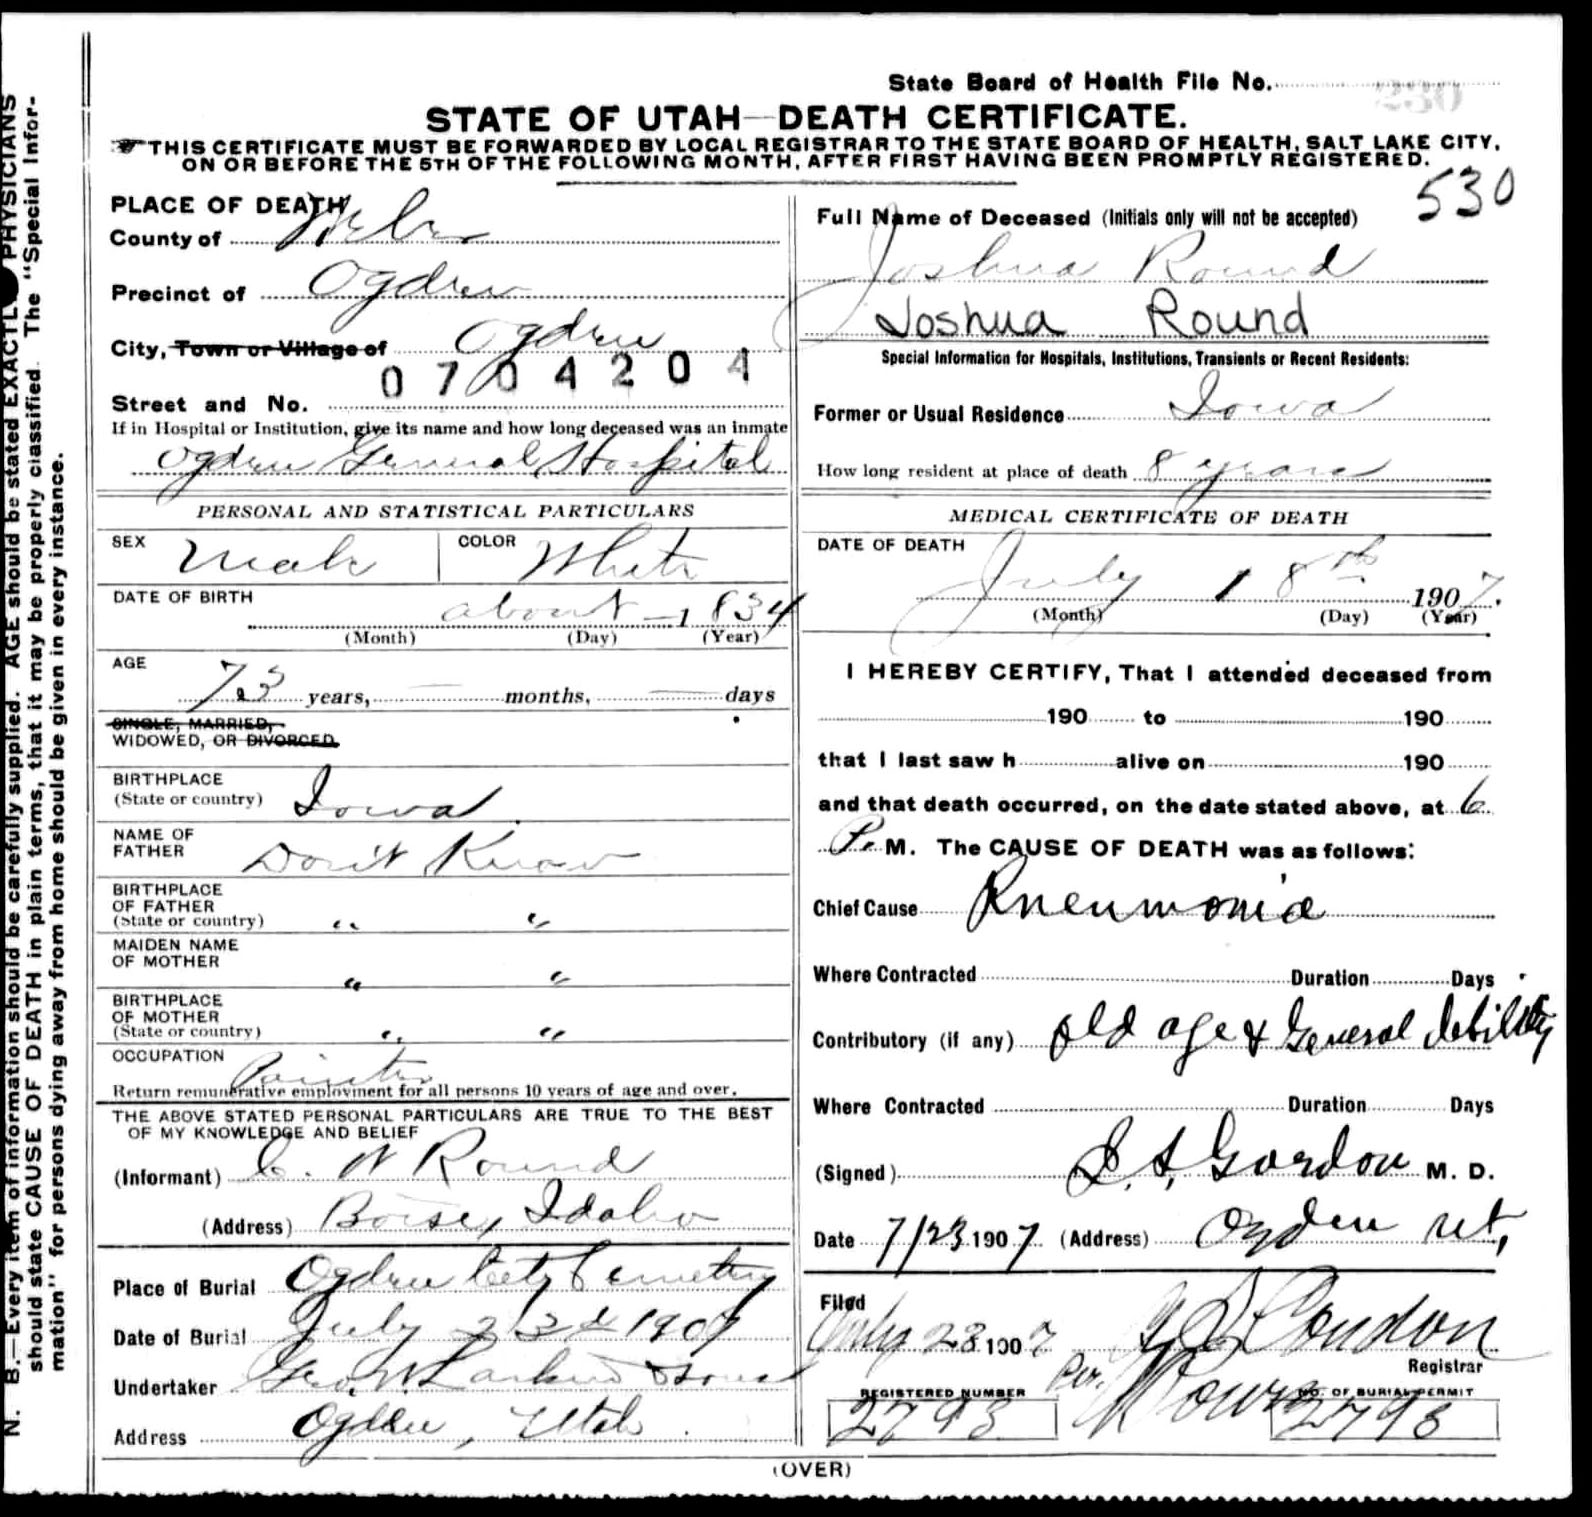 State Board of Health File No. 230
STATE OF UTAH—DEATH CERTIFICATE.
THIS CERTIFICATE MUST BE FORWARDED BY LOCAL REGISTRAR TO THE STATE BOARD OF HEALTH, SALT LAKE CITY,
ON OR BEFORE THE 5TH OF THE FOLLOWING MONTH, AFTER FIRST HAVING BEEN PROMPTLY REGISTERED.
530
PLACE OF DEATH
County of Weber
Precinct of Ogden
City, Town or Village of Ogden
0704204
Street and No.
If in Hospital or Institution, give its name and how long deceased was an inmate
Ogden General Hospital
PERSONAL AND STATISTICAL PARTICULARS
SEX Male COLOR White
DATE OF BIRTH about — 1834
(Month) (Day) (Year)
AGE
73 years, — months, — days
SINGLE, MARRIED,
WIDOWED, OR DIVORCED.
BIRTHPLACE
(State or country) Iowa
NAME OF
FATHER Don't Know
BIRTHPLACE
OF FATHER
(State or country) " "
MAIDEN NAME
OF MOTHER " "
BIRTHPLACE
OF MOTHER
(State or country) " "
OCCUPATION Painter
Return remunerative employment for all persons 10 years of age and over.
THE ABOVE STATED PERSONAL PARTICULARS ARE TRUE TO THE BEST
OF MY KNOWLEDGE AND BELIEF
(Informant) C. W Round
(Address) Boise, Idaho
Place of Burial Ogden City Cemetery
Date of Burial July 23d 1907
Undertaker Geo. W Larkin & Sons
Address Ogden, Utah.
Full Name of Deceased (Initials only will not be accepted)
Joshua Round
Joshua Round
Special Information for Hospitals, Institutions, Transients or Recent Residents:
Former or Usual Residence Iowa
How long resident at place of death 8 years
MEDICAL CERTIFICATE OF DEATH
DATE OF DEATH
July 18th 1907.
(Month) (Day) (Year)
I HEREBY CERTIFY, That I attended deceased from
190 to 190
that I last saw h alive on 190
and that death occurred, on the date stated above, at 6
P. M. The CAUSE OF DEATH was as follows:
Chief Cause Pneumonia
Where Contracted Duration Days
Contributory (if any) old age & General debility
Where Contracted Duration Days
(Signed) Gordon M. D.
Date 7/23 1907. (Address) Ogden Ut,
Filed
July 23 1907 Condon
Registrar
Per.
REGISTERED NUMBER
2793
NO. OF BURIAL PERMIT
2793
(OVER)
N. B.—Every item of information should be carefully supplied. AGE should be stated EXACTLY. PHYSICIANS
should state CAUSE OF DEATH in plain terms, that it may be properly classified. The "Special Infor-
mation" for persons dying away from home should be given in every instance.